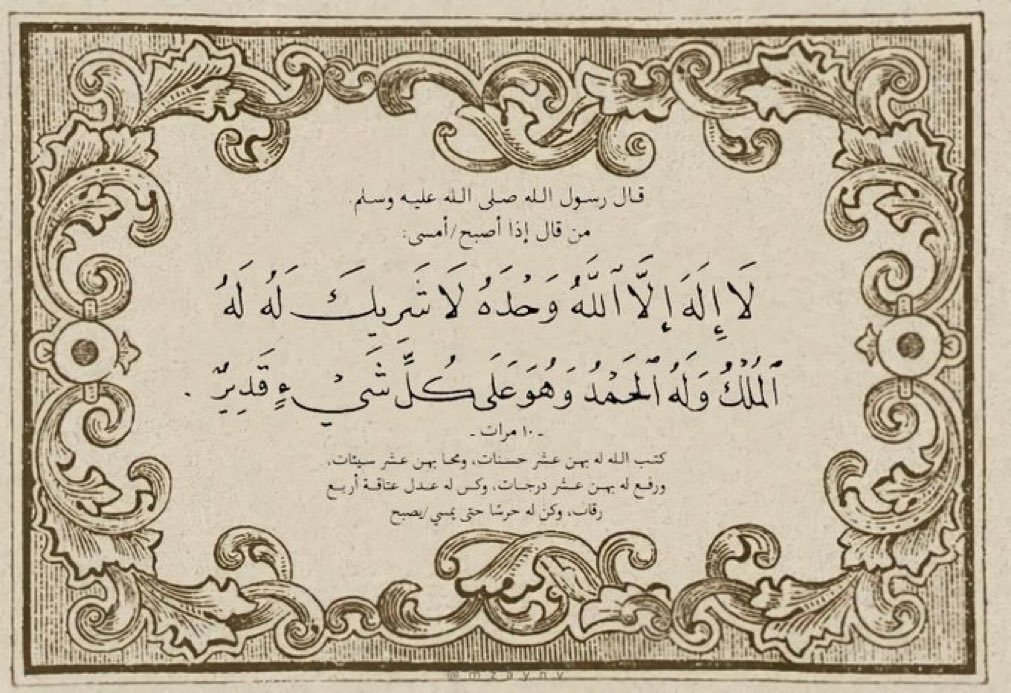 قال رسول الله صلى الله عليه وسلم.
من قال إذا أصبح/أمسى:
لَا إِلَهَ إِلَّا ٱللَّهُ وَحْدَهُ لَا شَرِيكَ لَهُ لَهُ
ٱلْمُلْكُ وَلَهُ ٱلْحَمْدُ وَهُوَ عَلَى كُلِّ شَيْءٍ قَدِيرٌ .
- ١٠ مرات -
كتب الله له بهن عشر حسنات، ومحا بهن عشر سيئات،
ورفع له بهن عشر درجات، وكن له عدل عتاقة أربع
رقاب، وكن له حرسًا حتى يمسي/يصبح
@mzaynv